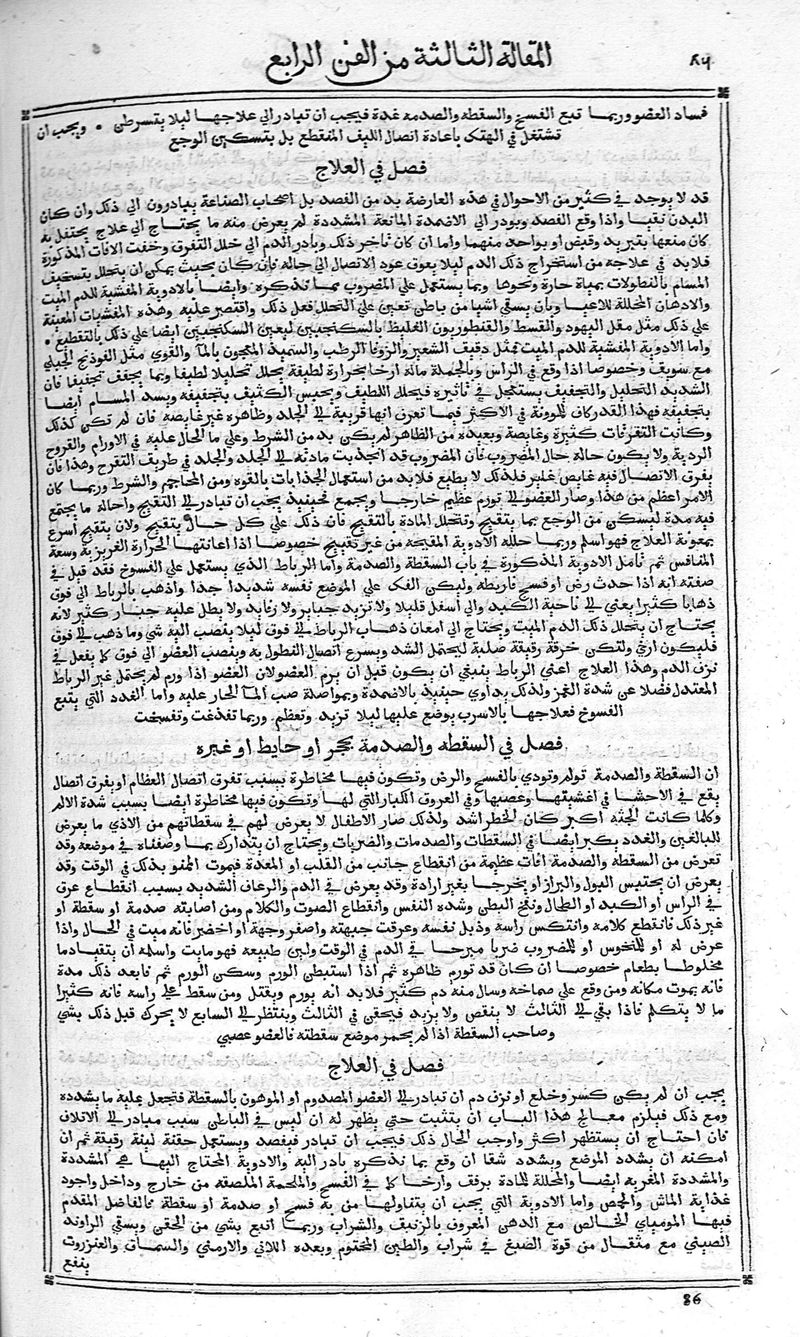 المقالة الثالثة من الفن الرابع
فساد العضو وربما تبع الفسخ والسقطه والصدمه غدة فيجب ان تبادر الي علاجها ليلا يتسرطن ٠ ويجب ان
تشتغل في الهتك باعادة اتصال الليف المنقطع بل بتسكين الوجع
فصل في العلاج
قد لا يوجد في كثير من الاحوال في هذه العارضة بد من الفصد بل اصحاب الصناعة يبادرون الي ذلك وان كان
البدن نقيا واذا وقع الفصد وبودر الي الاضمدة المانعة المشددة لم يعرض منه ما يحتاج الي علاج يحتفل به
كان منعها بتبريد وقبض او بواحد منهما واما ان كان تاخر ذلك وبادر الدم الي خلل التفرق وخفت الافات المذكورة
فلابد في علاجه من استخراج ذلك الدم ليلا يعوق عود الاتصال الي حاله فان كان بحيث يمكن ان يتحلل بتسخيف
المسام بالنطولات بمياة حارة ونحوها وبما يستعمل علي المضروب مما نذكره وايضا بالادوية المفشية للدم الميت
والادهان المحللة للاعيا وبان يسقي اشيا من باطن تعين علي التحلل فعل ذلك واقتصر عليه وهذه المفشيات المعينة
علي ذلك مثل مقل اليهود والقسط والقنطوريون الغليظ بالسكنجبين ليعين السكنجبين ايضا علي ذلك بالتقطيع ٠
واما الادوية المفشية للدم الميت فمثل دقيق الشعير والزوفا الرطب والسميذ المعجون بالما والقوي مثل الفوذنج الجبلي
مع سويق وخصوصا اذا وقع في الراس وبالجملة ماله ارخا بحرارة لطيفة يحلل تحليلا لطيفا وبما يجفف تجفيفا فان
الشديد التحليل والتجفيف يستعجل في تاثيره فيحلل اللطيف ويحبس الكثيف بتجفيفه ويسد المسام ايضا
بتجفيفه فهذا القدر كان للمونة في الاكثر فيما تعرف انها قريبة الي الجلد وظاهره غير غايصه فان لم تكن كذلك
وكانت التفرقات كثيرة وغايصة وبعيده من الظاهر لم يكن بد من الشرط وعلي ما الحال عليه في الاورام والقروح
الردية ولا يكون حاله حال المضروب فان المضروب قد انجذبت مادته الي الجلد والجلد في طريف التقرح وهذا فان
تفرق الاتصال فيه غايص غاير فلذلك لا يطيع فلابد من استعمال الجذابات بالقوه ومن المحاجم والشرط وربما كان
الامر اعظم من هذا وصار العضو الي تورم عظيم خارجا ويجمع فحينيذ يجب ان تبادر الي التقييح واحالة ما يجتمع
فيه مدة ليسكن من الوجع بما يتقيح وتتحلل المادة بالتقيح فان ذلك علي كل حال يتقيح ولان يتقيح اسرع
بمعونة العلاج فهو اسلم وربما حللته الادوية المقيحه من غير تقييح خصوصا اذا اعانتها الحرارة الغريزية وسعة
المنافس ثم تامل الادوية المذكورة في باب السقطة والصدمة واما الرباط الذي يستعمل علي الفسوخ فقد قيل في
صفته انه اذا حدث رض او فسخ فاربطه وليكن الفك علي الموضع نفسه شديدا جدا واذهب بالرباط الي فوق
ذهابا كثيرا يعني الي ناحية الكبد والي اسفل قليلا ولا تزيد جباير ولا رفايد ولا يطل عليه جبار كثير لانه
يحتاج ان يتحلل ذلك الدم الميت ويحتاج الي امعان ذهاب الرباط الي فوق ليلا ينصب اليه شي وما ذهب الي فوق
فليكون ارق ولتكن خرقة رقيقة صلبة ليحتمل الشد ويسرع اتصال النطول به وينصب العضو الي فوق كما يفعل في
نزف الدم وهذا العلاج اعني الرباط ينبغي ان يكون قبل ان يرم العضو لان العضو اذا ورم لم يحتمل غير الرباط
المعتدل فضلا عن شدة الغمز ولذلك يداوي حينيذ بالاضمدة وبمواصلة صب الما الحار عليه واما الغدد التي يتبع
الفسوخ فعلاجها بالاسرب يوضع عليها ليلا تزيد وتعظم وربما تفذغت وتفسخت
فصل في السقطه والصدمة بحجر او حايط او غيره
ان السقطة والصدمة تولم وتودي بالفسخ والرض وتكون فيها مخاطرة بسبب تفرق اتصال العظام او بفرق اتصال
يقع في الاحشا في اغشيتها وعصبها وفي العروق الكبار التي لها وتكون فيها مخاطرة ايضا بسبب شدة الالم
وكلما كانت الجثه اكبر كان الخطر اشد ولذلك صار الاطفال لا يعرض لهم في سقطاتهم من الاذي ما يعرض
للبالغين والغدد يكبر ايضا في السقطات والصدمات والضربات ويحتاج ان يتدارك بما وصفناه في موضعه وقد
تعرض من السقطه والصدمة افات عظيمة من انقطاع جانب من القلب او المعدة فيموت الممنو بذلك في الوقت وقد
يعرض ان يحتبس البول والبراز او يخرجا بغير ارادة وقد يعرض في الدم والرعاف الشديد بسبب انقطاع عرق
في الراس او الكبد او الطحال ونفخ البطن وشده النفس وانقطاع الصوت والكلام ومن اصابته صدمة او سقطة او
غير ذلك فانقطع كلامه وانتكس راسه وذبل نفسه وعرقت جبهته واصفر وجهة او اخضر فانه ميت في الحال واذا
عرض له او للنخوس او للمضروب ضربا مبرحا في الدم في الوقت ولين طبيعه فهو مايت واسلمه ان يتقيا دما
مخلوطا بطعام خصوصا ان كان قد تورم ظاهره ثم اذا استبطن الورم وسكن الورم ثم فابعد ذلك مدة
فانه يموت مكانه ومن وقع علي صماخه وسال منه دم كثير فلابد انه يورم ويقتل ومن سقط علي راسه فانه كثيرا
ما لا يتكلم فاذا بقي الي الثالث لا ينقص ولا يزيد فيحقن في الثالث وينتظر الي السابع لا يحرك قبل ذلك بشي
وصاحب السقطة اذا لم يحمر موضع سقطته فالعضو عصبي
فصل في العلاج
يجب ان لم يكن كسر وخلع او نزف دم ان تبادر الي العضو المصدوم او الموهون بالسقطة فتجعل عليه ما يشدده
ومع ذلك فيلزم معالج هذا الباب ان يتثبت حتي يظهر له ان ليس في الباطن سبب مبادر الي الاتلاف
فان احتاج ان يستظهر اكثر واوجب الحال ذلك فيجب ان تبادر فيفصد ويستعمل حقنة لينة رقيقة ثم ان
امكنه ان يشدد الموضع ويشدد شقا ان وقع بما نذكره بادر اليه والادوية المحتاج اليها هي المشددة
والمشددة المغرية ايضا والمحللة للمادة برفق وارخا كما في الفسخ والملحمة الملصقه من خارج وداخل واجود
غذاية الماش والحمص واما الادوية التي يجب ان يتناولها من به فسخ او صدمة او سقطة فالفاضل المقدم
فيها المومياي الخالص مع الدهن المعروف بالزنبق والشراب وربما اتبع بشي من الحقن ويسقي الراوند
الصيني مع مثقال من قوة الصبغ في شراب والطين المختوم وبعده اللاني والارمني والسماق والعنزروت
ينفع
86